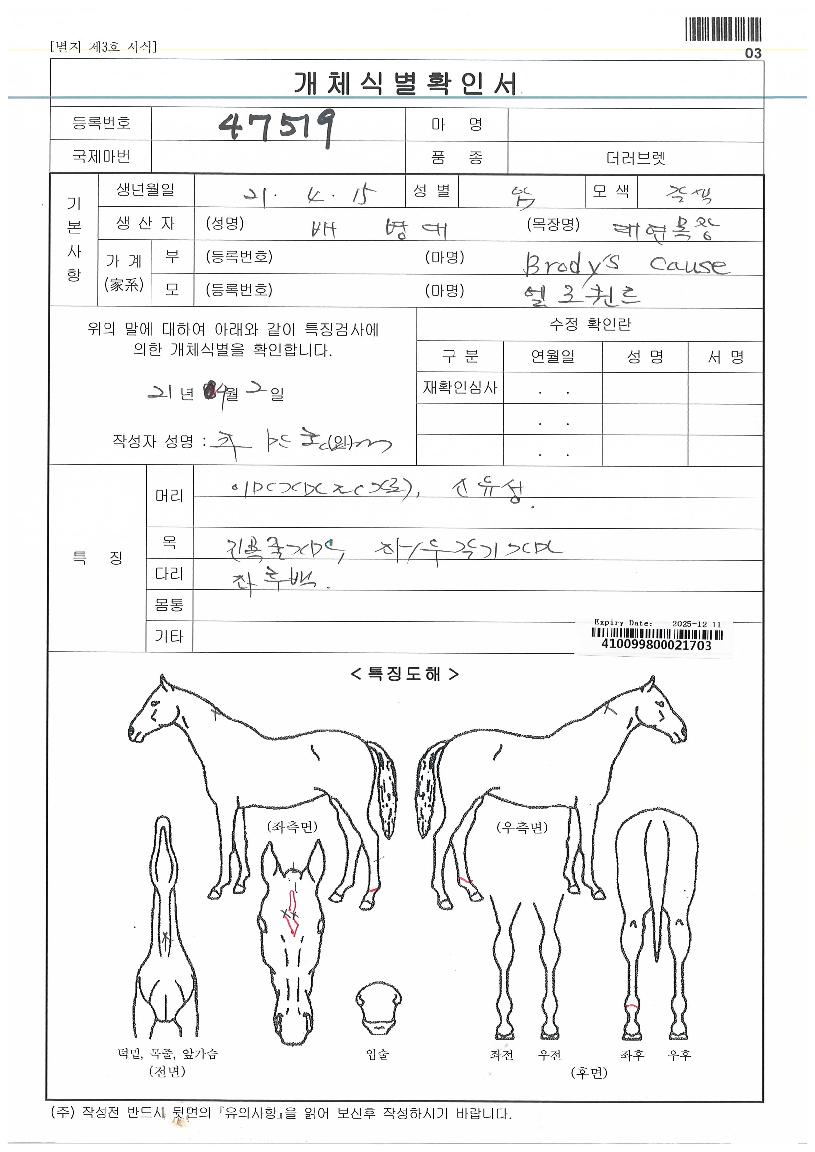 [별지 제3호 서식]
03
개체식별확인서
등록번호 47519 마 명
국제마번 품 종 더러브렛
기본사항
생년월일 21. 4. 15 성별 암 모색
생 산 자 (성명) 배 병 대 (목장명) 태연목장
가계(家系) 부 (등록번호) (마명) Brody's Cause
모 (등록번호) (마명)
위의 말에 대하여 아래와 같이 특징검사에
의한 개체식별을 확인합니다.
21년 9월 2일
작성자 성명 : (인)
수정 확인란
구 분 연월일 성 명 서 명
재확인심사 . .
. .
. .
특 징
머리
목
다리 좌후백.
몸통
기타
Expiry Date: 2025-12-11
410099800021703
< 특징도해 >
(좌측면) (우측면)
턱밑, 목줄, 앞가슴
(전면)
입술
좌전 우전 좌후 우후
(후면)
(주) 작성전 반드시 뒷면의 『유의사항』을 읽어 보신후 작성하시기 바랍니다.